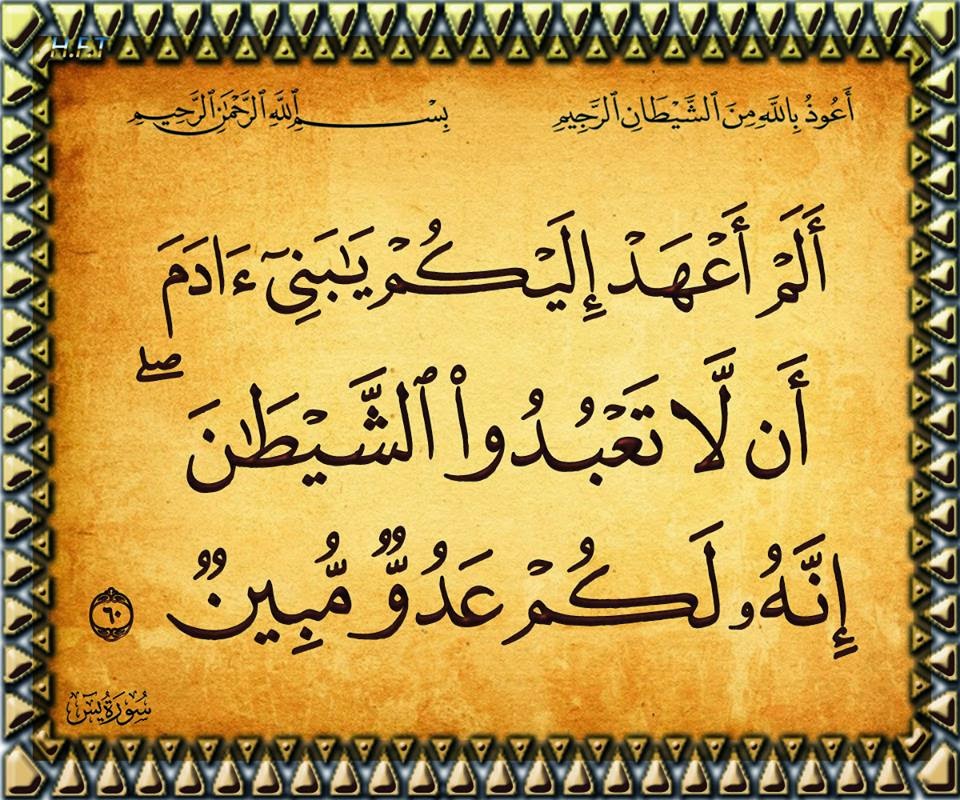 H.F.T
أَعُوذُ بِاللَّهِ مِنَ ٱلشَّيْطَانِ ٱلرَّجِيمِ بِسْمِ ٱللَّهِ ٱلرَّحْمَٰنِ ٱلرَّحِيمِ
أَلَمْ أَعْهَدْ إِلَيْكُمْ يَٰبَنِىٓ ءَادَمَ
أَن لَّا تَعْبُدُوا۟ ٱلشَّيْطَٰنَ ۖ
إِنَّهُۥ لَكُمْ عَدُوٌّ مُّبِينٌ ٦٠
سُورَةُ يسٓ